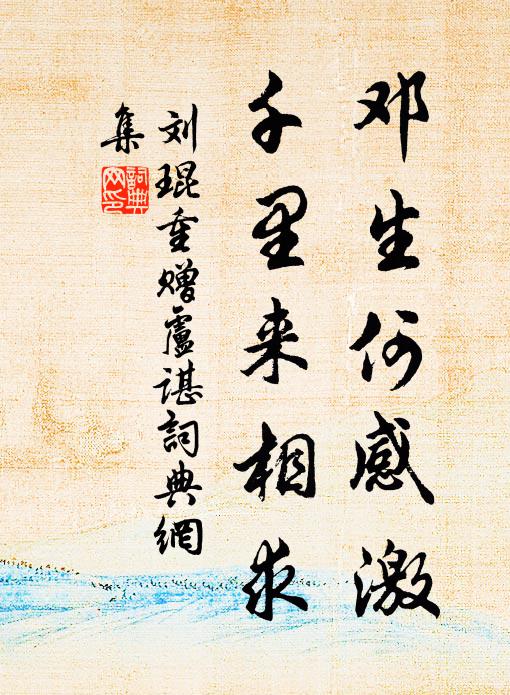 邓生何感激
千里来相求
刘琨重赠盧谌詞典網
集
詞典
网印